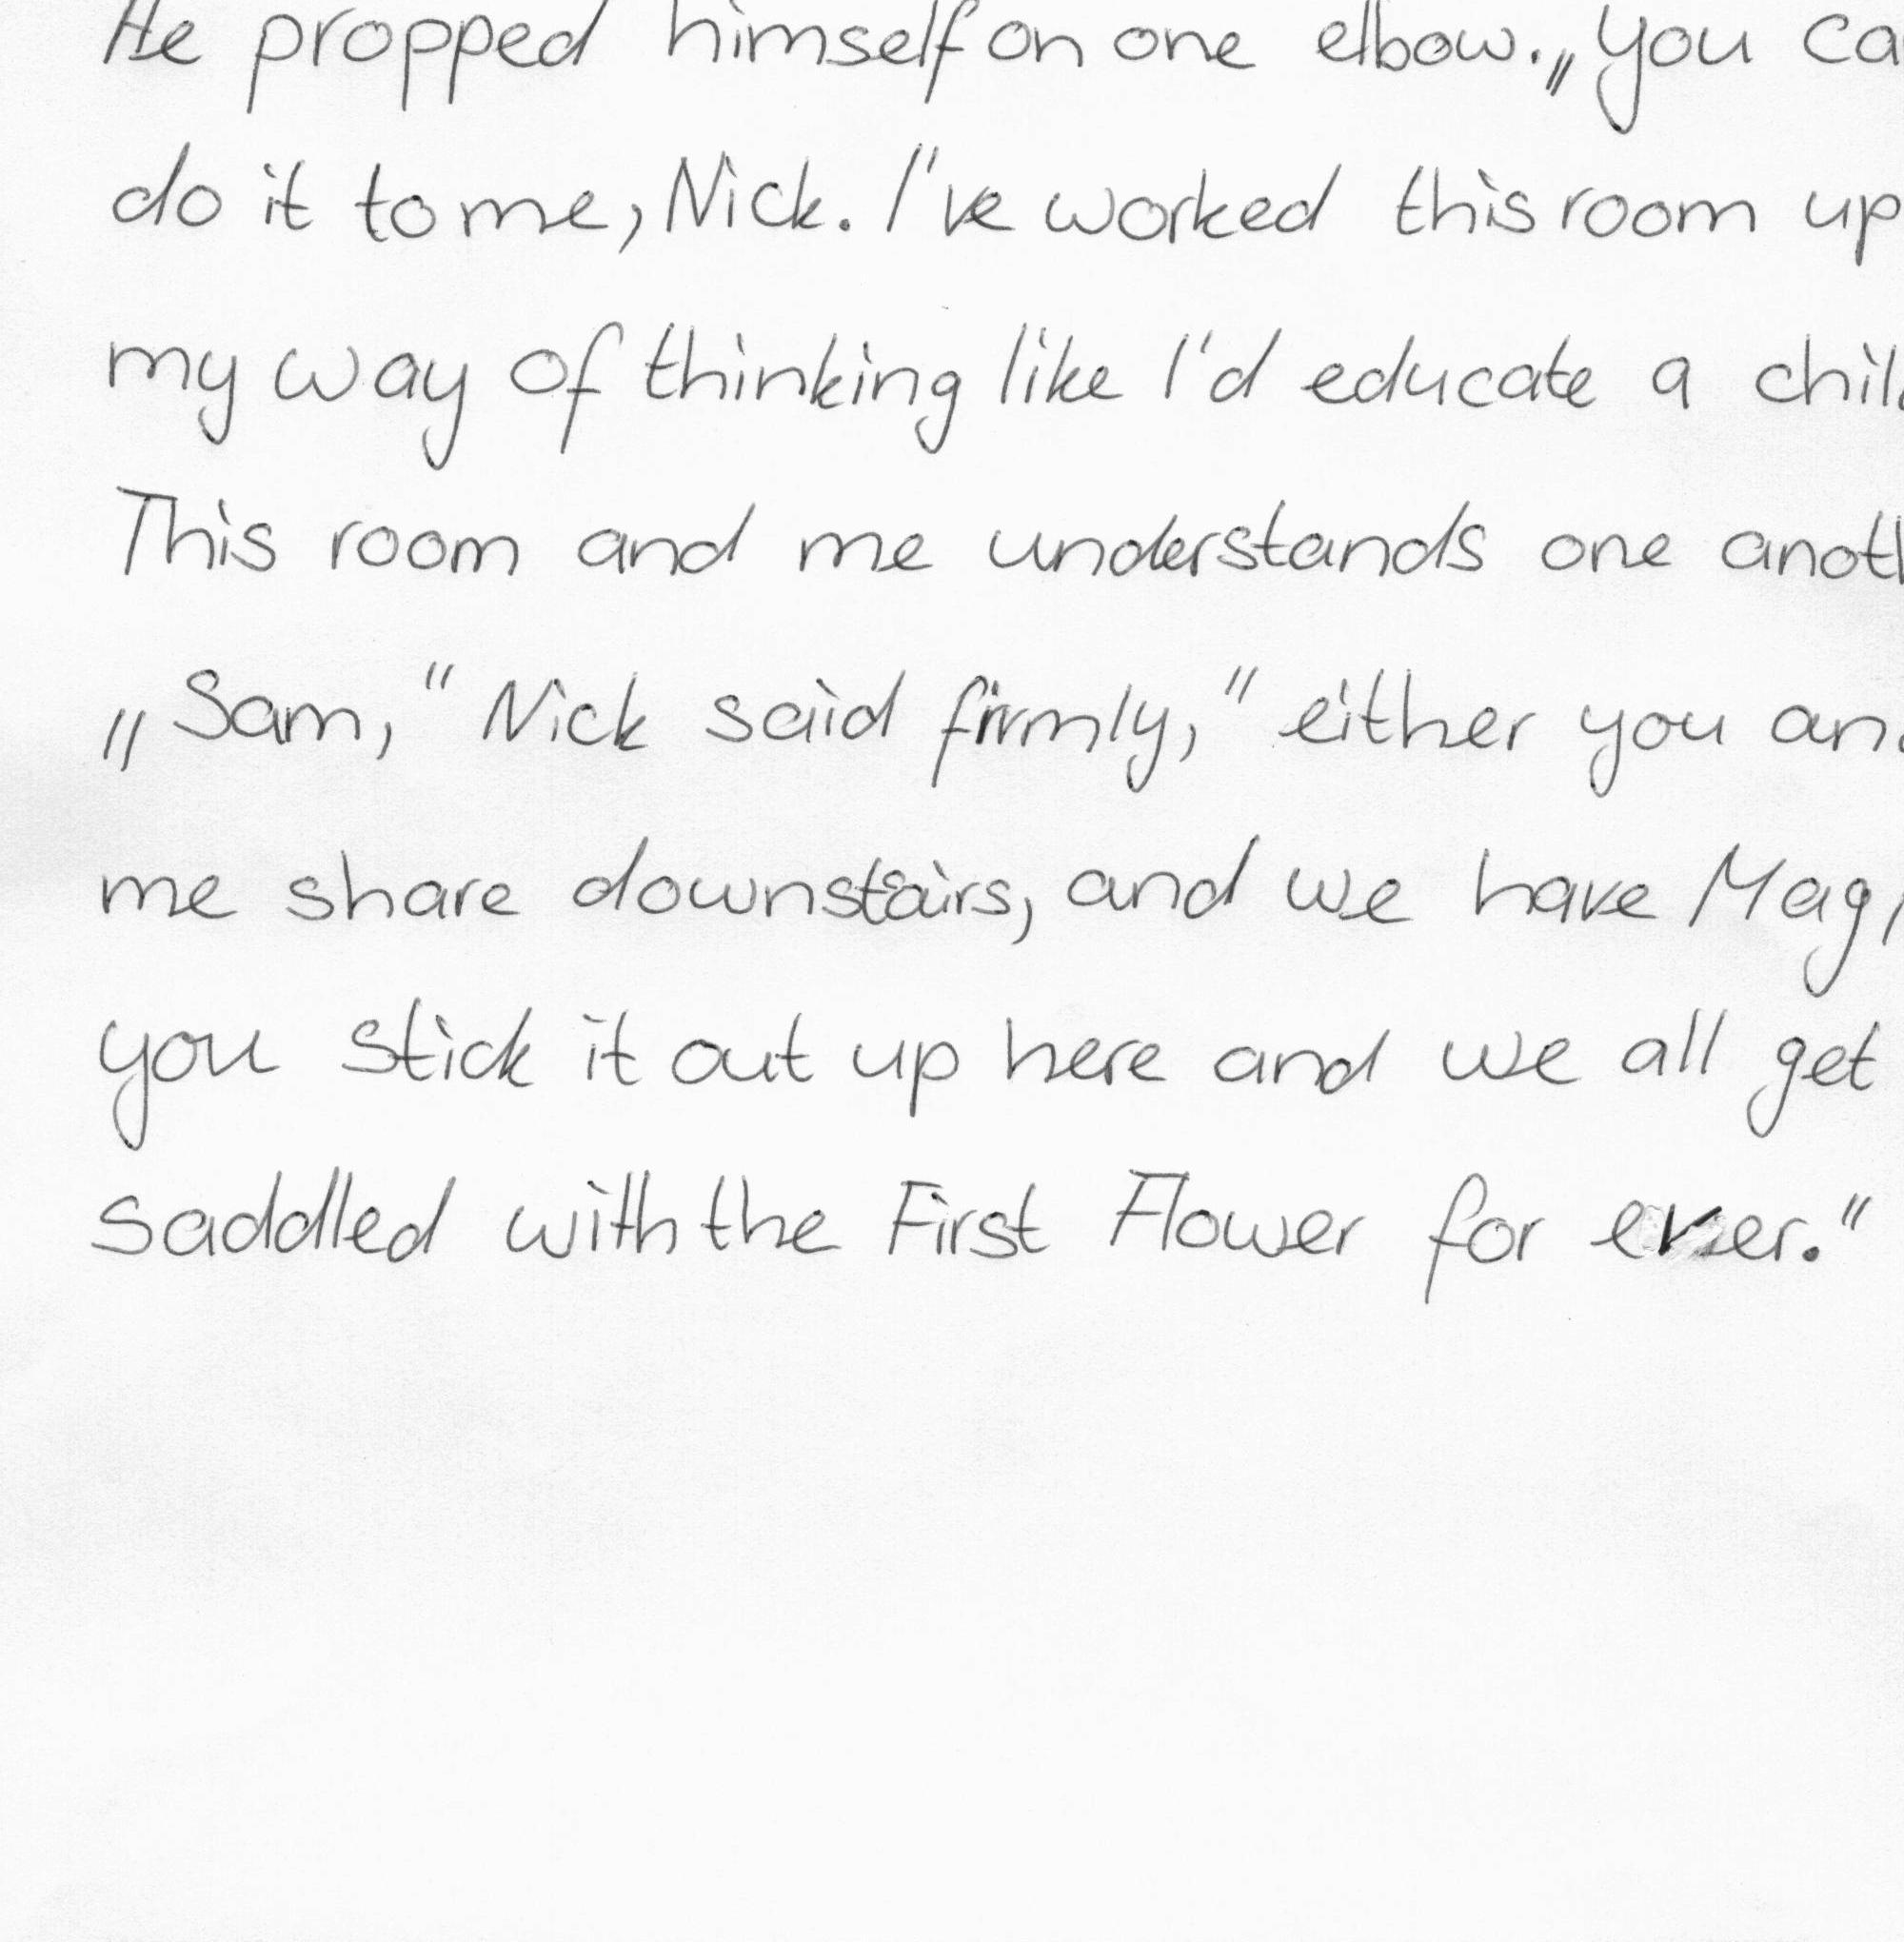 He propped himself on one elbow. „You ca
do it to me, Nick. I've worked this room up
my way of thinking like I'd educate a chil
This room and me understands one anoth
„Sam,“ Nick said firmly,“ either you and
me share downstairs, and we have Mag,
you stick it out up here and we all get
saddled with the First Flower for ever.“